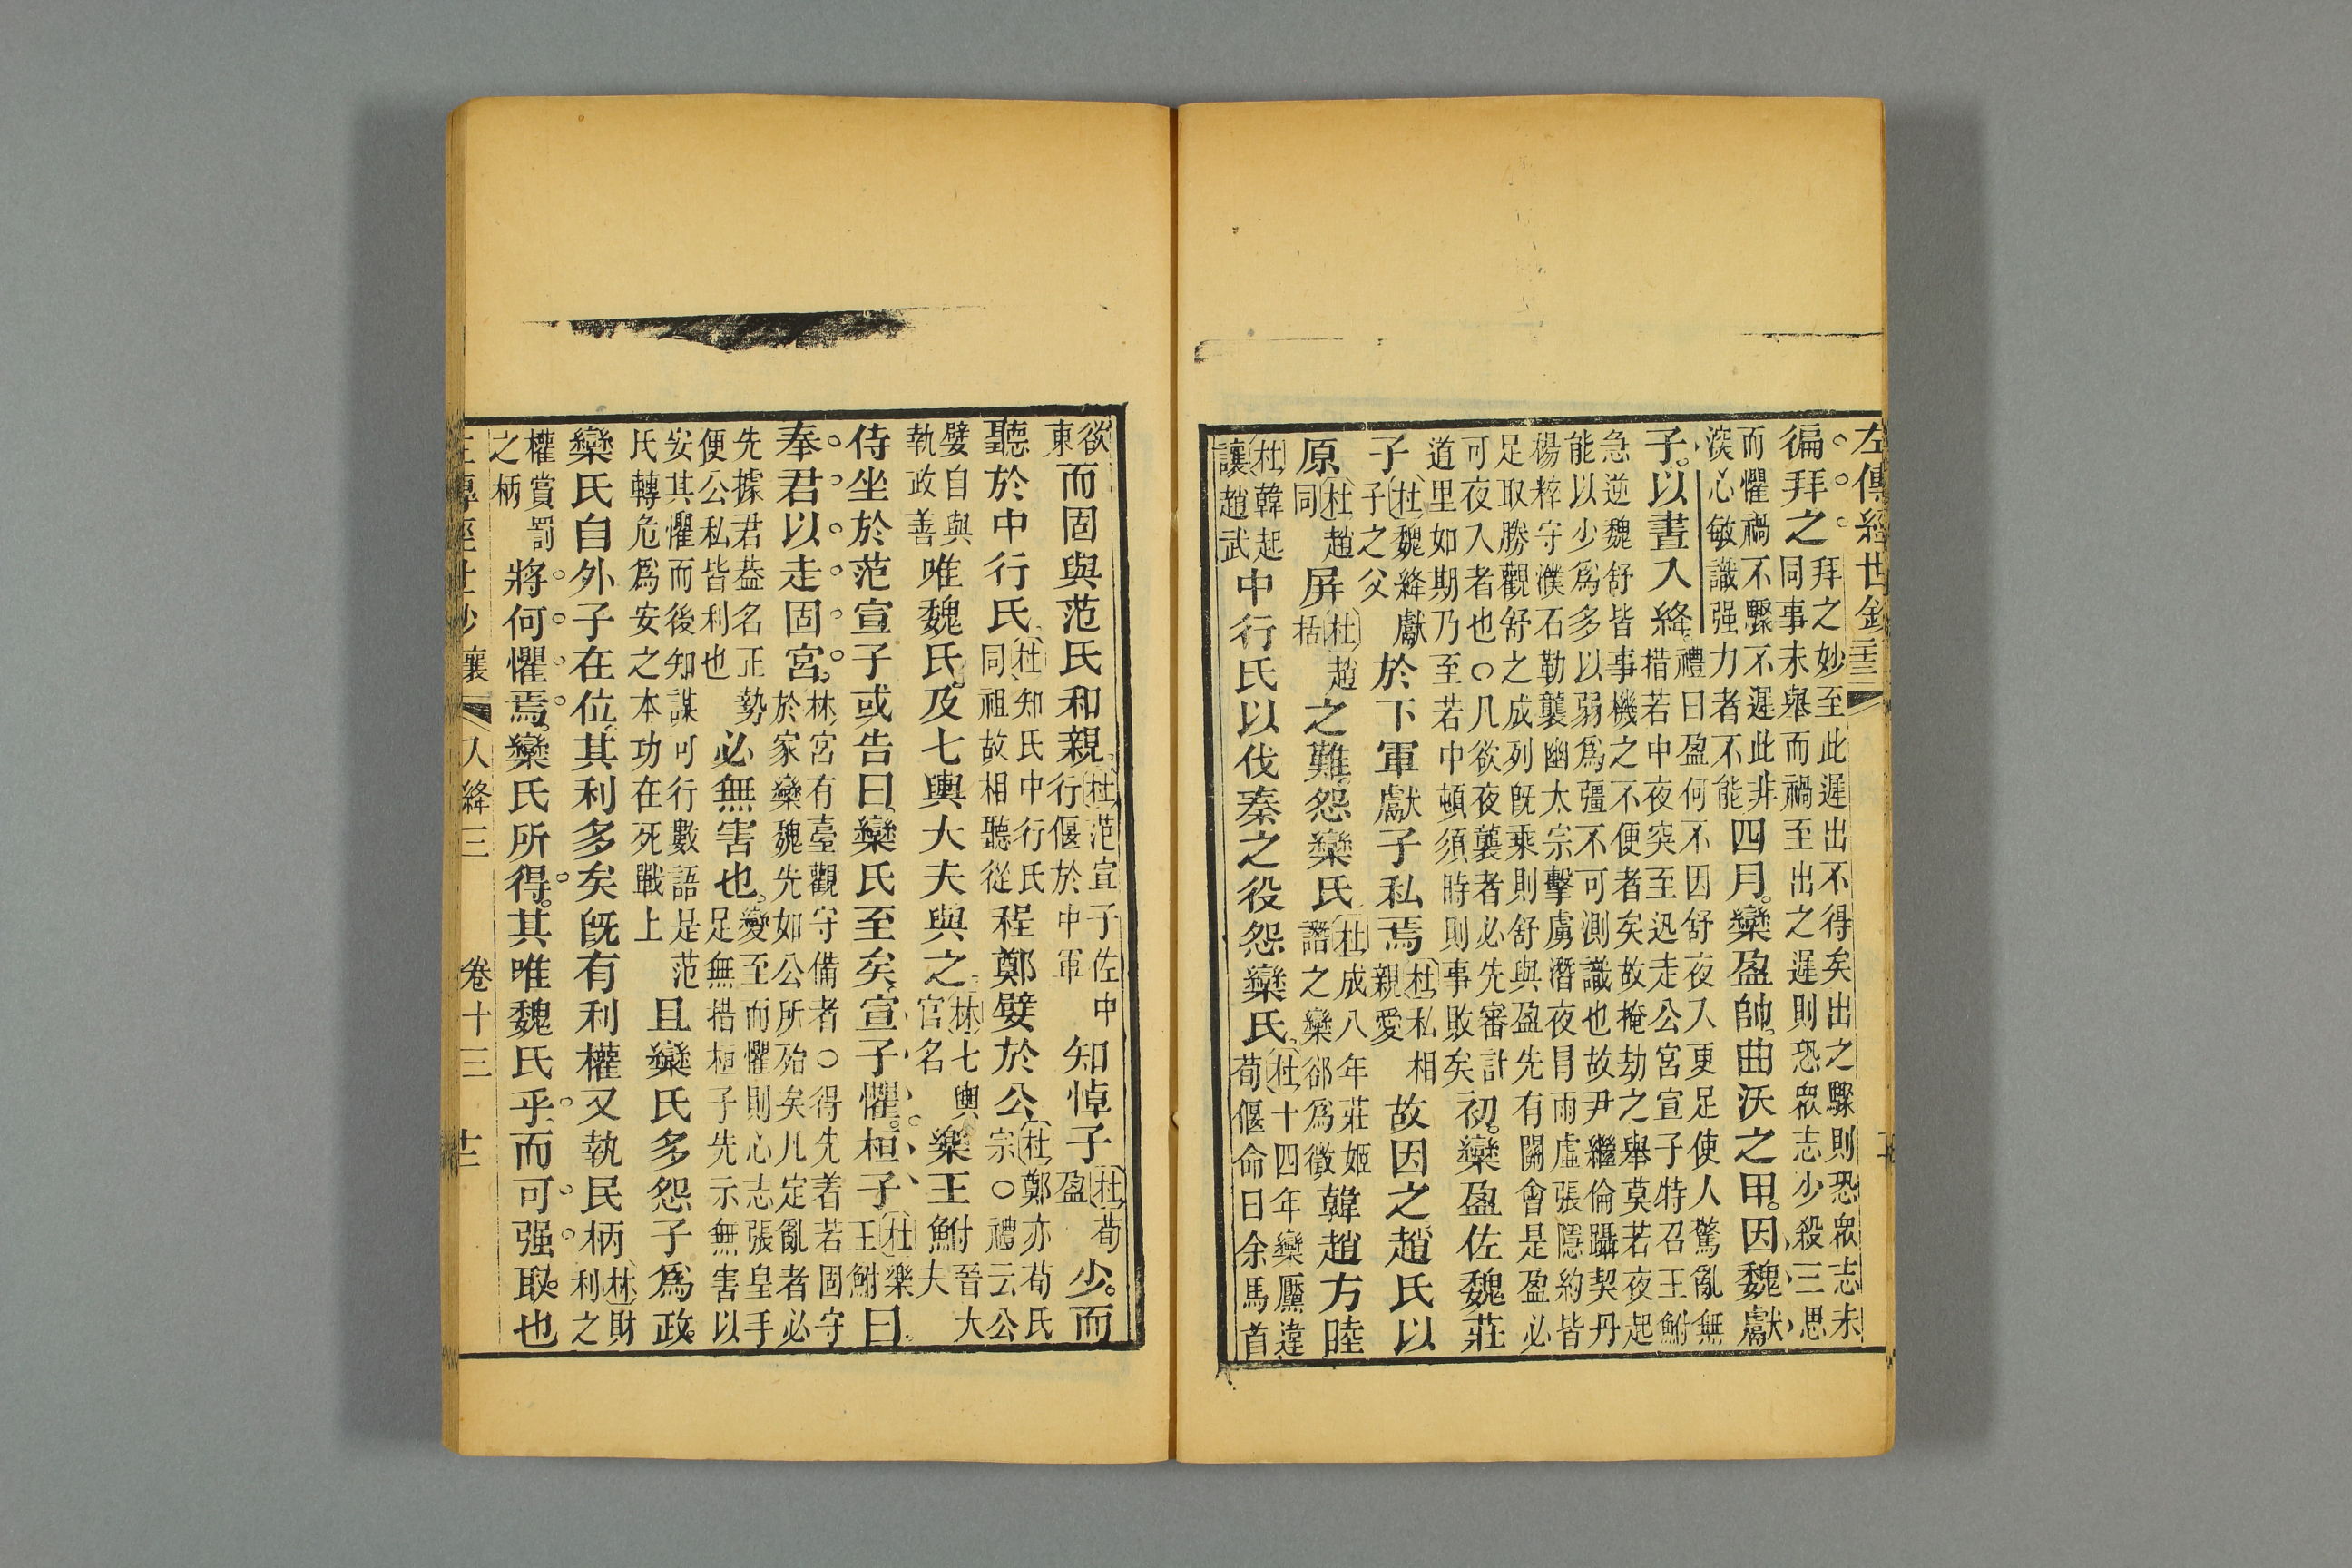 左傳經世鈔
徧拜之
拜之妙至此遲出不得矣出之驟則恐眾志未
同事未舉而禍至出之遲則恐眾志少殺三思
而懼禍不驟不遲此非
深心敏識强力者不能
四月欒盈帥曲沃之甲因魏獻
子以晝入絳
禮曰盈何不因舒夜入更足使人驚亂無
措若中夜突至迅走公宮宣子特召王鮒
急逆魏舒皆事機之不便者矣故掩劫之舉莫若夜起
能以少爲多以弱爲彊不可測識也故尹繼倫躡契丹
楊粹守濮石勒襲幽太宗擊虜潛夜冒雨虛張隱約皆
足取勝觀舒之成列旣乘則舒與盈先有關會是盈必
可夜入者也○凡欲夜襲者必先審計
道里如期乃至若中頓須時則事敗矣
初欒盈佐魏莊
子
杜魏絳獻
子之父
於下軍獻子私焉
杜私相
親愛
故因之趙氏以
原
杜趙
同
屏
杜趙
括
之難怨欒氏
杜成八年莊姬
譖之欒郤爲徵
韓趙方睦
杜韓起
讓趙武
中行氏以伐秦之役怨欒氏
杜十四年欒黶違
荀偃命曰余馬首
欲
東
而固與范氏和親
杜范宣子佐中
行偃於中軍
知悼子
杜荀
盈
少而
聽於中行氏
杜知氏中行氏
同祖故相聽從
程鄭嬖於公
杜鄭亦荀氏
宗○禮云公
嬖自與
執政善
唯魏氏及七輿大夫與之
林七輿
官名
樂王鮒
晉大
夫
侍坐於范宣子或告曰欒氏至矣宣子懼桓子
杜樂
王鮒
曰
奉君以走固宮
林宮有臺觀守備者○得先着若固守
於家欒魏先如公所殆矣凡定亂者必
先據君葢名正勢
便公私皆利也
必無害也
變至而懼則心志張皇手
足無措桓子先示無害以
安其懼而後知謀可行數語是范
氏轉危爲安之本功在死戰上
且欒氏多怨子爲政
欒氏自外子在位其利多矣旣有利權又執民柄
林財
利之
權賞罰
之柄
將何懼焉欒氏所得其唯魏氏乎而可强取也
左傳經世鈔 襄 入絳三 卷十三